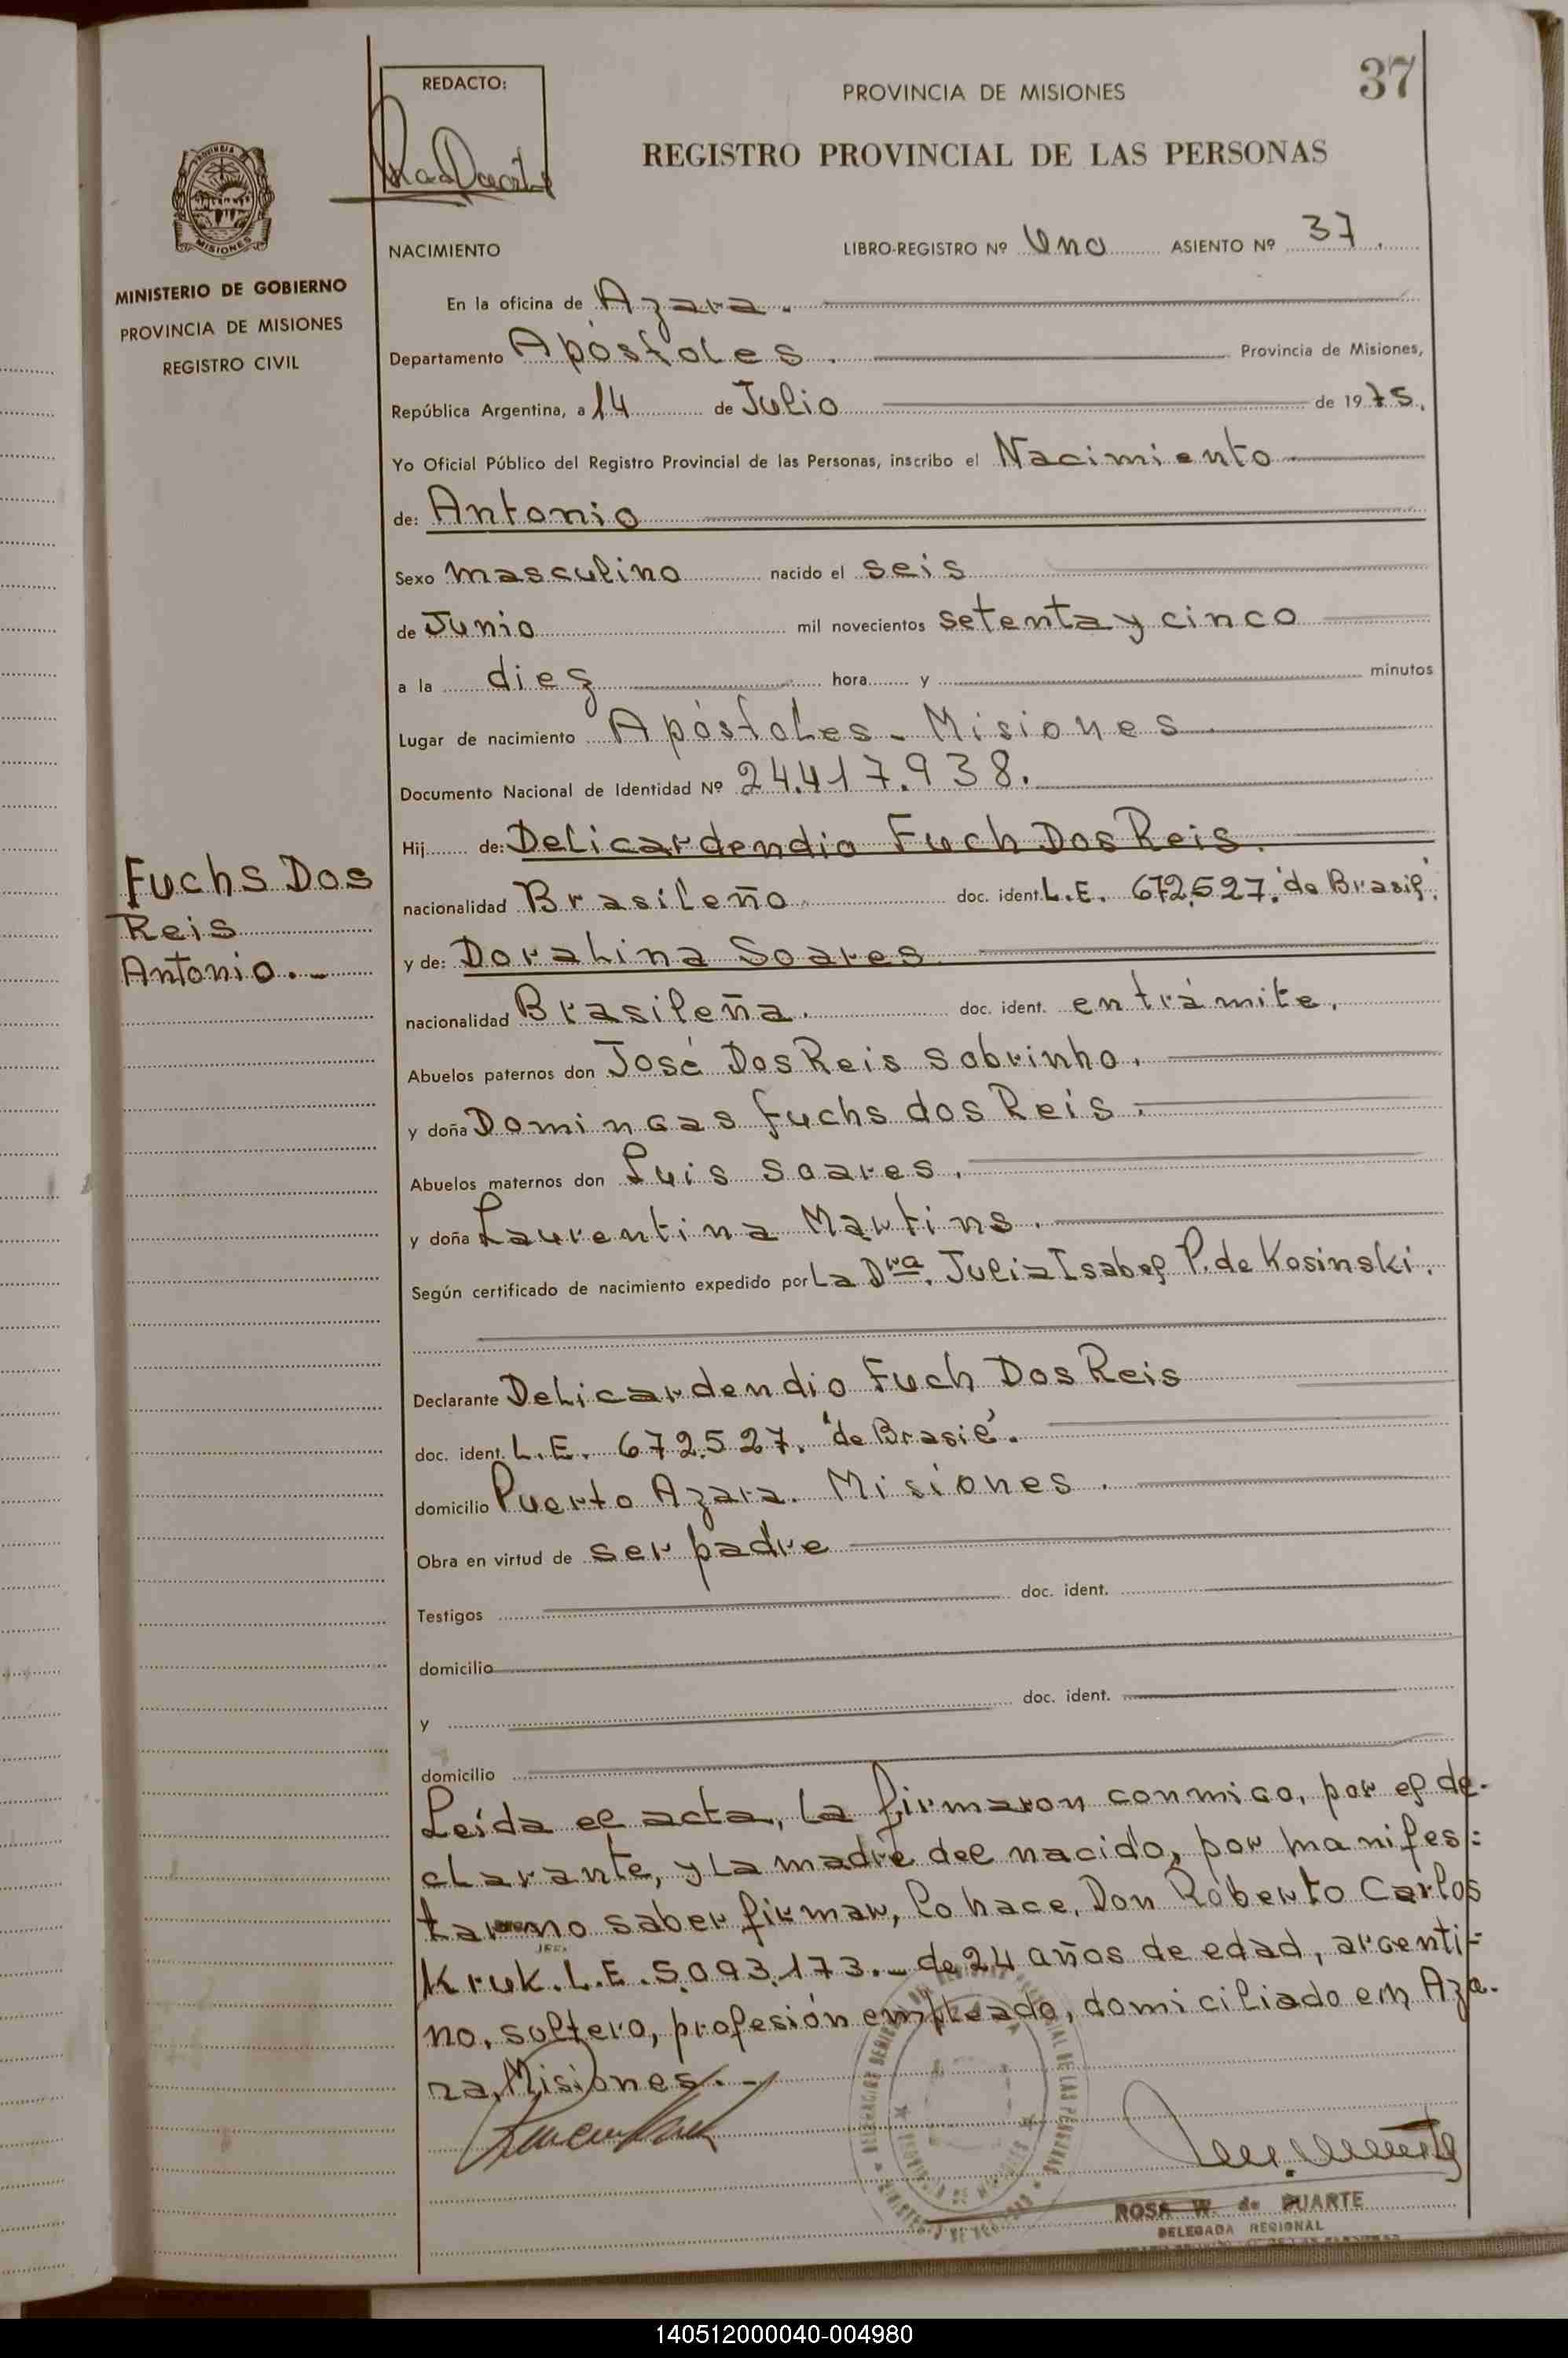 37
REDACTO:
PROVINCIA DE MISIONES
REGISTRO PROVINCIAL DE LAS PERSONAS
MISIONES
MINISTERIO DE GOBIERNO
PROVINCIA DE MISIONES
REGISTRO CIVIL
NACIMIENTO LIBRO-REGISTRO Nº Uno ASIENTO Nº 37.
En la oficina de Azara.
Departamento Apóstoles. Provincia de Misiones,
República Argentina, a 14 de Julio de 1975.
Yo Oficial Público del Registro Provincial de las Personas, inscribo el Nacimiento
de: Antonio
Sexo masculino nacido el seis
de Junio mil novecientos setenta y cinco
a la diez hora y minutos
Lugar de nacimiento Apóstoles - Misiones
Documento Nacional de Identidad Nº 24.417.938.
Hij de: Delicardendio Fuch Dos Reis.
Fuchs Dos
Reis
Antonio.-
nacionalidad Brasileño doc. ident. L.E. 672.527. "de Brasil"
y de: Doralina Soares
nacionalidad Brasileña. doc. ident. en trámite.
Abuelos paternos don José Dos Reis Sobrinho.
y doña Domingas fuchs dos Reis.
Abuelos maternos don Luis Soares.
y doña Laurentina Martins.
Según certificado de nacimiento expedido por La Dra. Julia Isabel P. de Kosinski.
Declarante Delicardendio Fuch Dos Reis
doc. ident. L.E. 672.527. "de Brasil".
domicilio Puerto Azara. Misiones.
Obra en virtud de ser padre
Testigos doc. ident.
domicilio
y doc. ident.
domicilio
Leída el acta, la firmaron conmigo, por el de-
clarante, y la madre del nacido, por manifes=
tar no saber firmar, lo hace, Don Roberto Carlos
Kruk. L.E. 5.093.173.- de 24 años de edad, argenti=
no, soltero, profesión empleado, domiciliado em Aza-
ra, Misiones.-
ROSA W. de DUARTE
DELEGADA REGIONAL
140512000040-004980